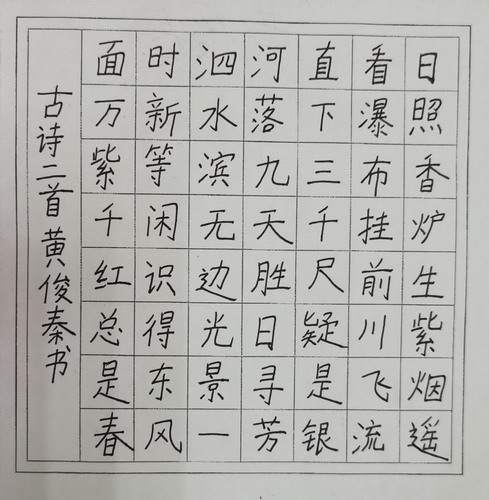 日照香炉生紫烟遥
看瀑布挂前川飞流
直下三千尺疑是银
河落九天胜日寻芳
泗水滨无边光景一
时新等闲识得东风
面万紫千红总是春
古诗二首 黄俊秦书